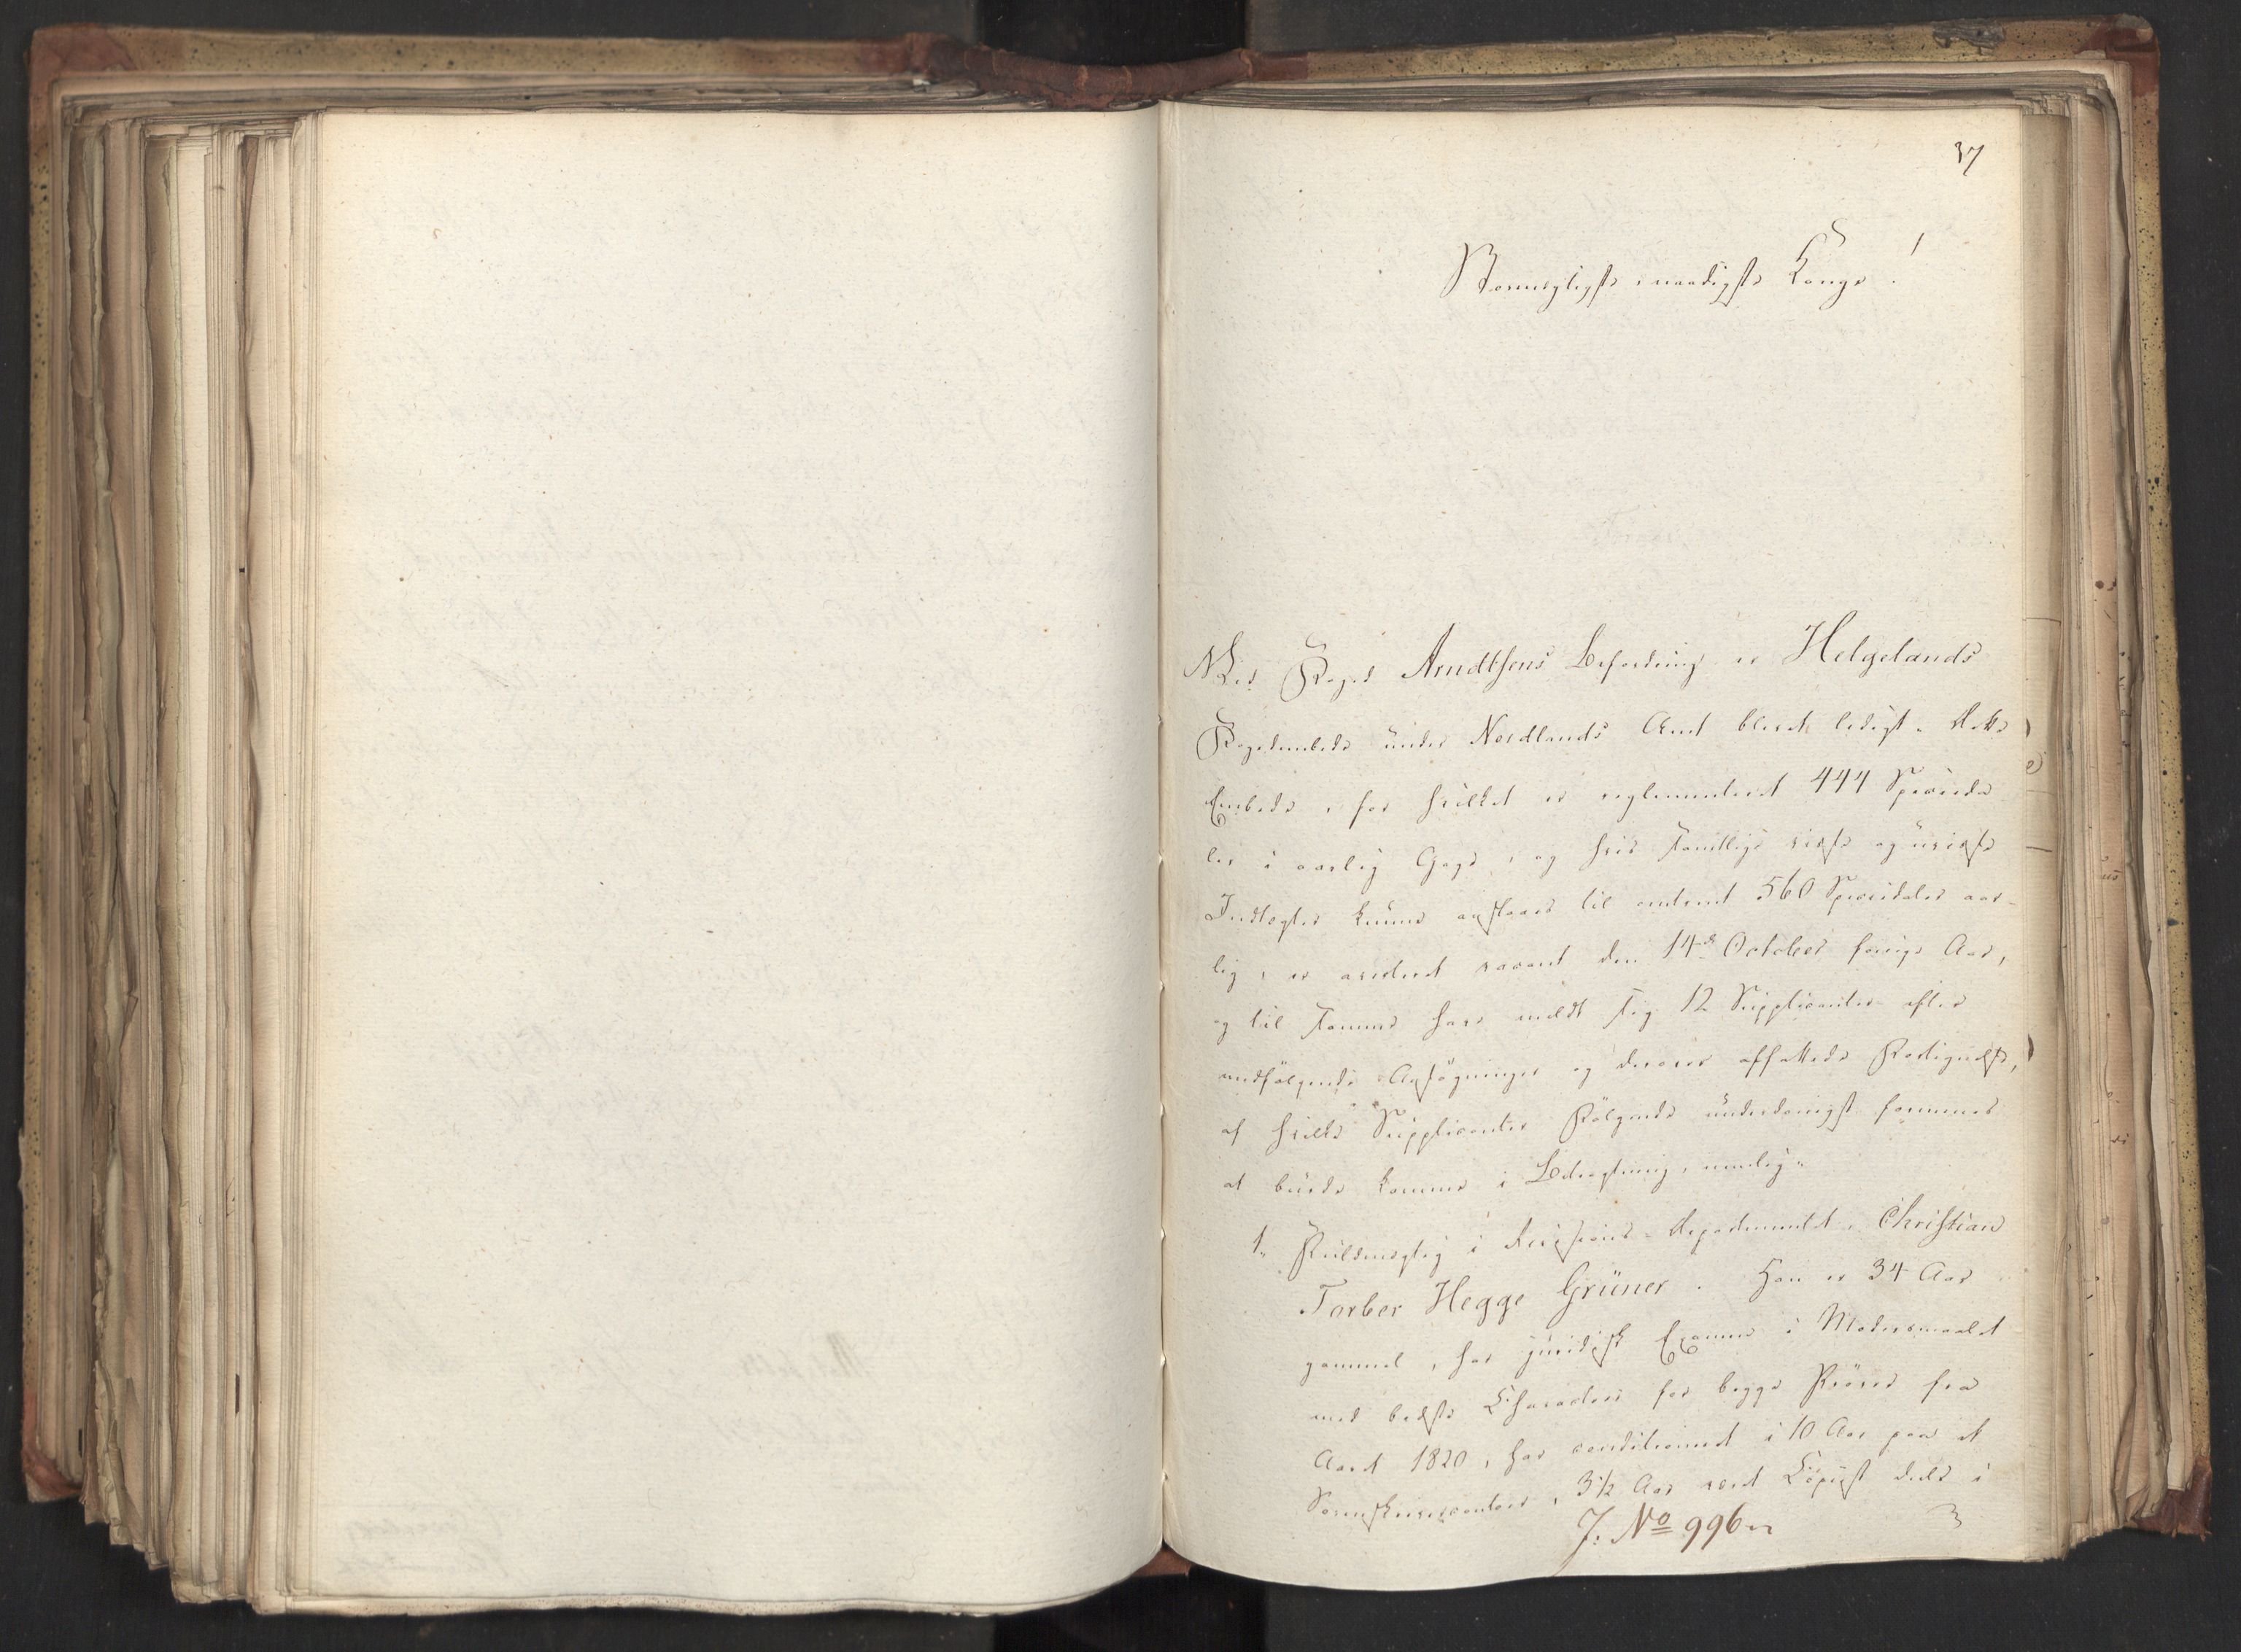 37
Stormægtigste, naadigste Konge!
Ved Foged Arndtsens Befordring er Helgelands
Fogedembede under Nordlands Amt blevet ledigt. Dette
Embede, for hvilket er reglementeret 444 Speciedа-
ler i aarlig Gage, og hvis samtlige visse og uvisse
Indtægter kunne ansees til omtrent 560 Speciedaler aar-
lig, er averteret vacant den 14de October forrige Aar,
og til samme have meldt sig 12 Supplicanter efter
medfølgende Ansøgninger og derover affattede Fortegnelse,
af hvilke Supplicanter Følgende underdanigst formenes
at burde komme i Betragtning, nemlig:
1. Fuldmægtig i Revisions-Departementet, Christian
Torber Hegge Grüner. Han er 34 Aar
gammel, har juridisk Examen i Modersmaalet
med bedste Charakteer for begge Prøver fra
Aaret 1820, har conditioneret i 10 Aar paa et
Sorenskrivercontoir, 3½ Aar været Copiist deels i
J: No 996